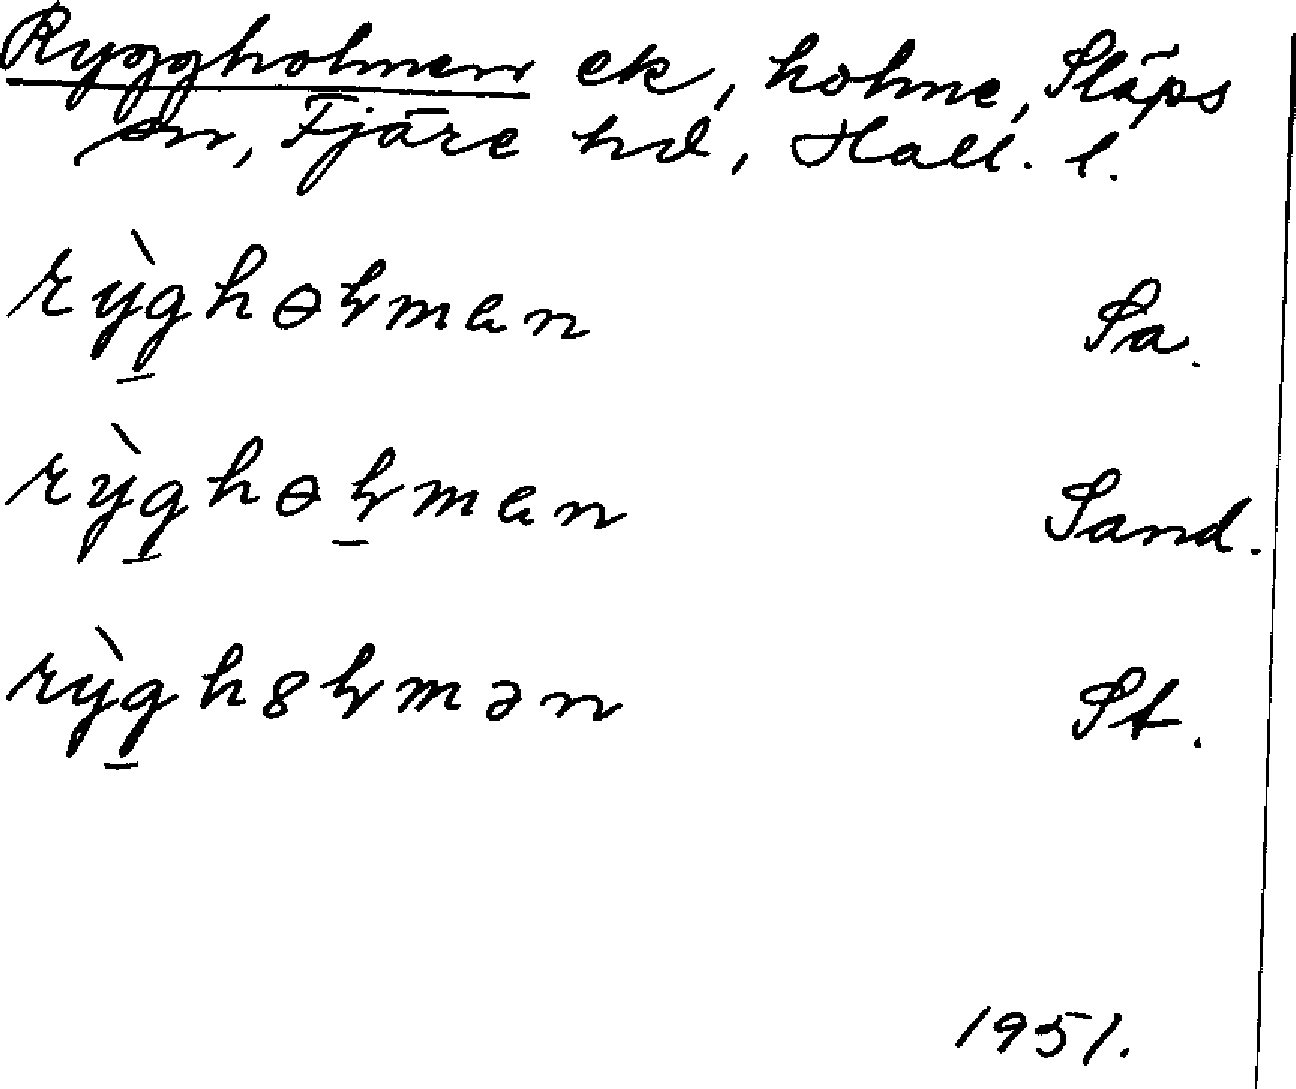 Ryggholmen ek, holme, Släps
sn, Fjäre hd, Hall. l.
rỳghɵɫmen Sa.
rỳghɵɫmen Sand.
rỳgh8ɫmən St.
1951.